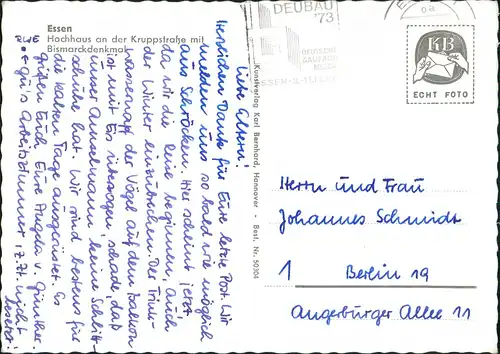 Essen
Hochhaus an der Kruppstraße mit
Bismarckdenkmal
DEUBAU
'73
DEUTSCHE
ESSEN
KB
ECHT FOTO
Liebe Eltern!
Herzlichen Dank für Eure letzte Post. Wir
melden uns so bald wie möglich
aus Schröcken. Hier scheint jetzt,
da wir die beginnen, auch
der Winter einzubrechen. Der Trink-
wassernapf der Vögel auf dem Balkon
ist mit Eis überzogen, schade, daß
unser Anselmann keine Schlitt-
schuhe hat. Wir sind bestens für
die kalten Tage ausgerüstet. Es
grüßen Euch Eure Angela u. Günther.
RWE
Arbeitszimmer, z. Zt. nicht
besetzt!
Kunstverlag Karl Bernhard, Hannover - Best. Nr. 50304
Herrn und Frau
Johannes Schmidt
1 Berlin 19
Angerburger Allee 11